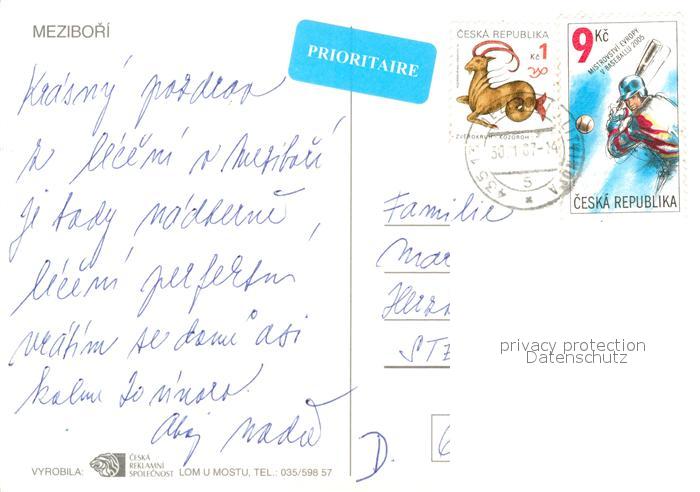 MEZIBOŘÍ
PRIORITAIRE
ČESKÁ REPUBLIKA
Kč 1
ZVĚROKRUH - KOZOROH
9 Kč
MISTROVSTVÍ EVROPY
V BASEBALLU 2005
ČESKÁ REPUBLIKA
30.1.07-14
435 13
5
Krásný pozdrav
z léčení v Meziboří
je tady nádherně,
léčení perfektní
vrátím se domů asi
kolem 20 února.
Ahoj
Familie
Mar
Herz
ST
privacy protection
Datenschutz
D.
VYROBILA:
ČESKÁ
REKLAMNÍ
SPOLEČNOST
LOM U MOSTU, TEL.: 035/598 57